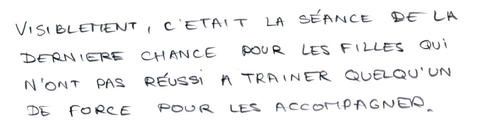 VISIBLEMENT, C'ETAIT LA SÉANCE DE LA
DERNIERE CHANCE POUR LES FILLES QUI
N'ONT PAS RÉUSSI A TRAINER QUELQU'UN
DE FORCE POUR LES ACCOMPAGNER.